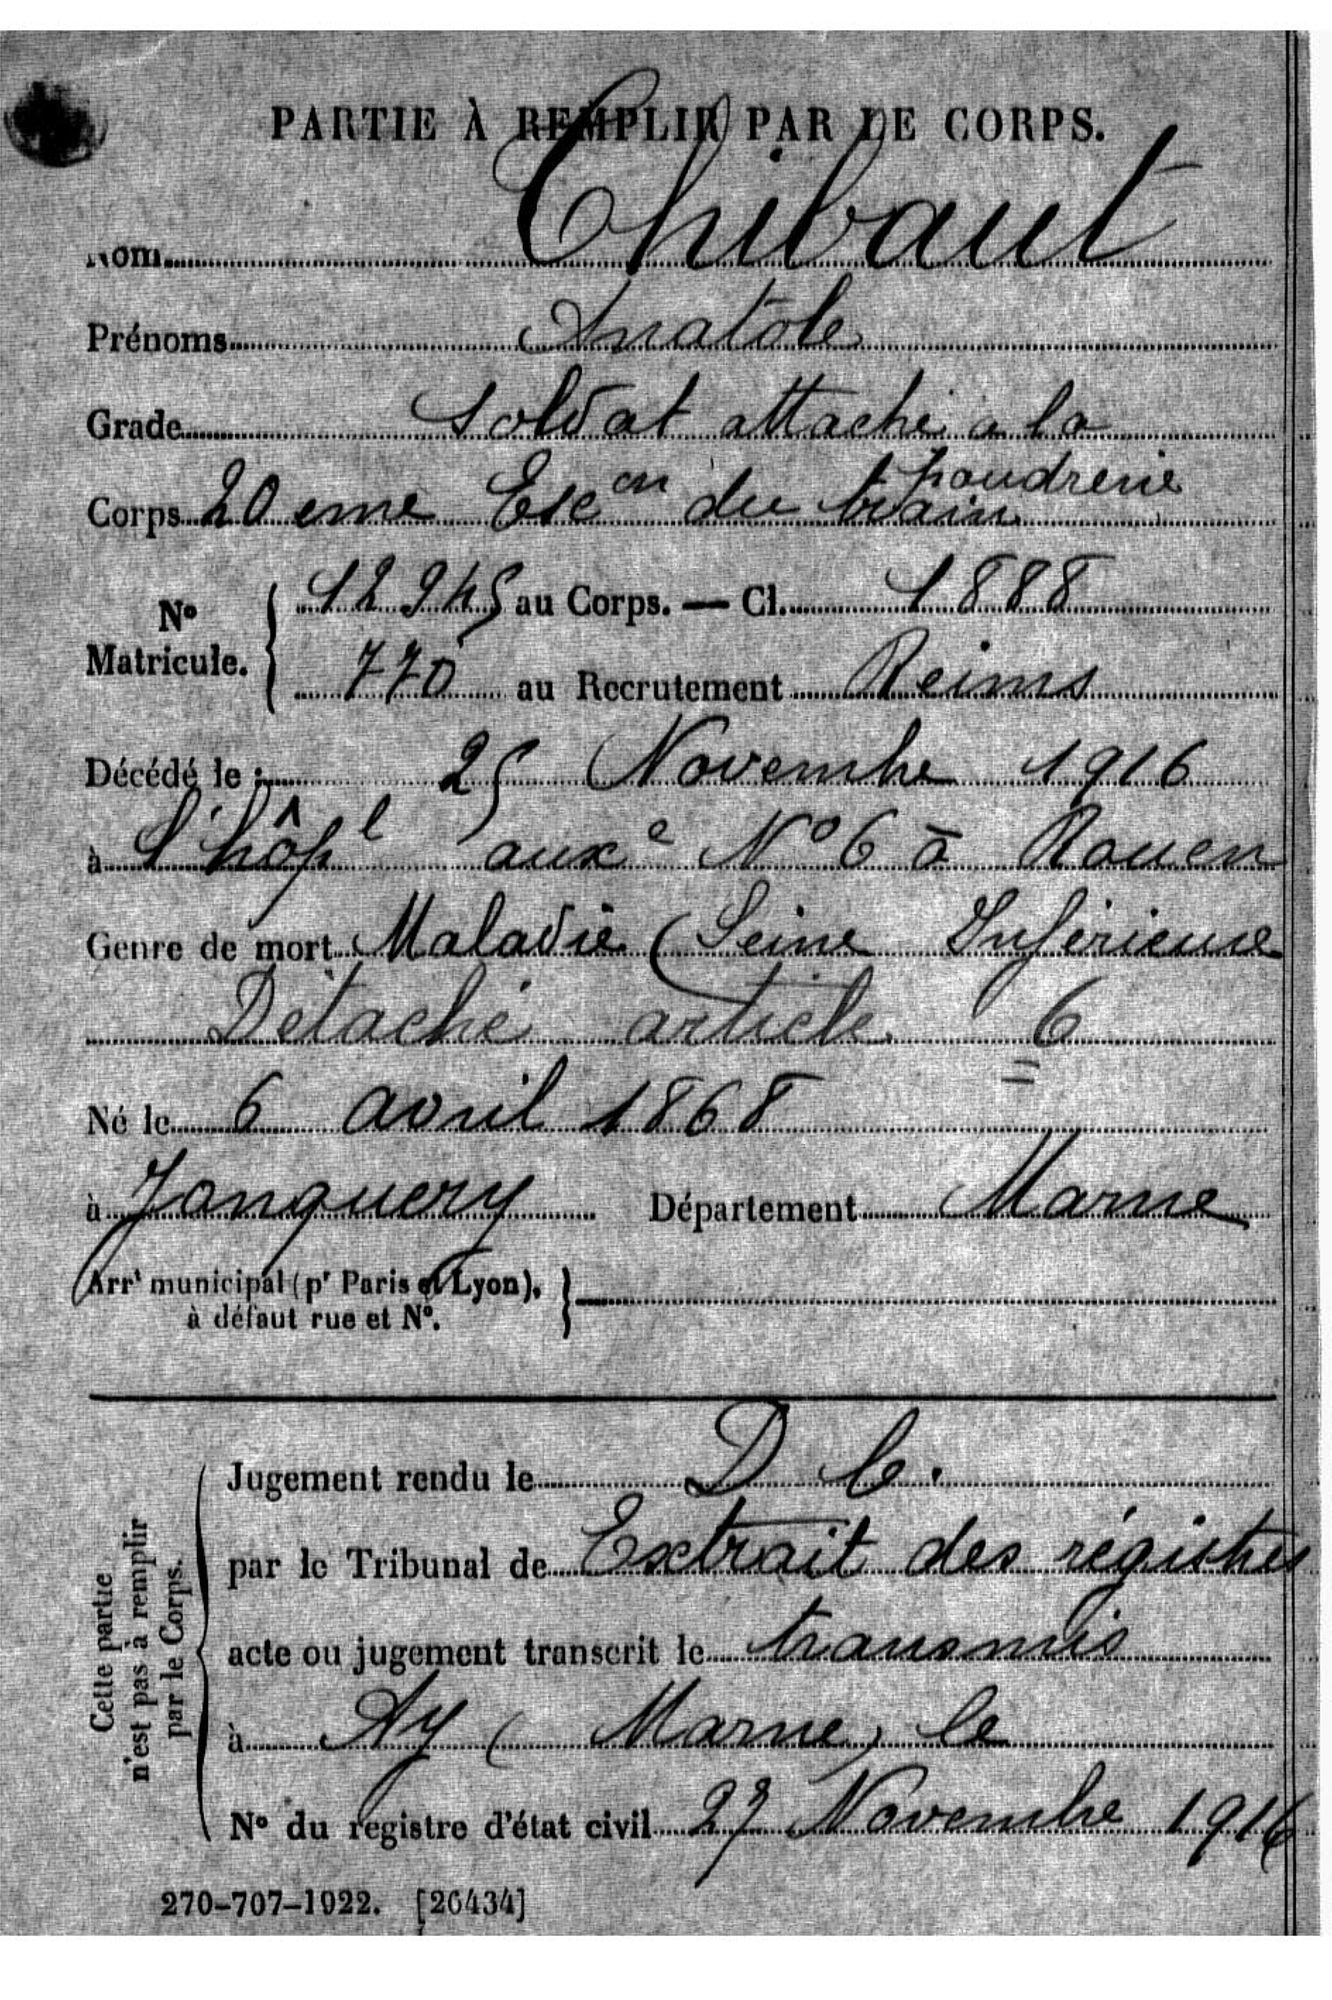 PARTIE À REMPLIR PAR LE CORPS.
Nom Thibaut
Prénoms Anatole
Grade Soldat attaché a la
poudrerie
Corps 20 eme Esc on du train
No Matricule. 12945 au Corps. — Cl. 1888
770 au Recrutement Reims
Décédé le : 25 Novembre 1916
à l'hôpl auxe No 6 à Rouen
Genre de mort Maladie (Seine Inférieure
Détaché article 6
Né le 6 avril 1868
à Jonquery Département Marne
Arrt municipal (pr Paris et Lyon),
à défaut rue et No.
Jugement rendu le D C.
par le Tribunal de Extrait des régistres
acte ou jugement transcrit le transmis
à Ay (Marne) le
No du registre d'état civil 27 Novembre 1916
Cette partie
n'est pas à remplir
par le Corps.
270-707-1922. [26434]